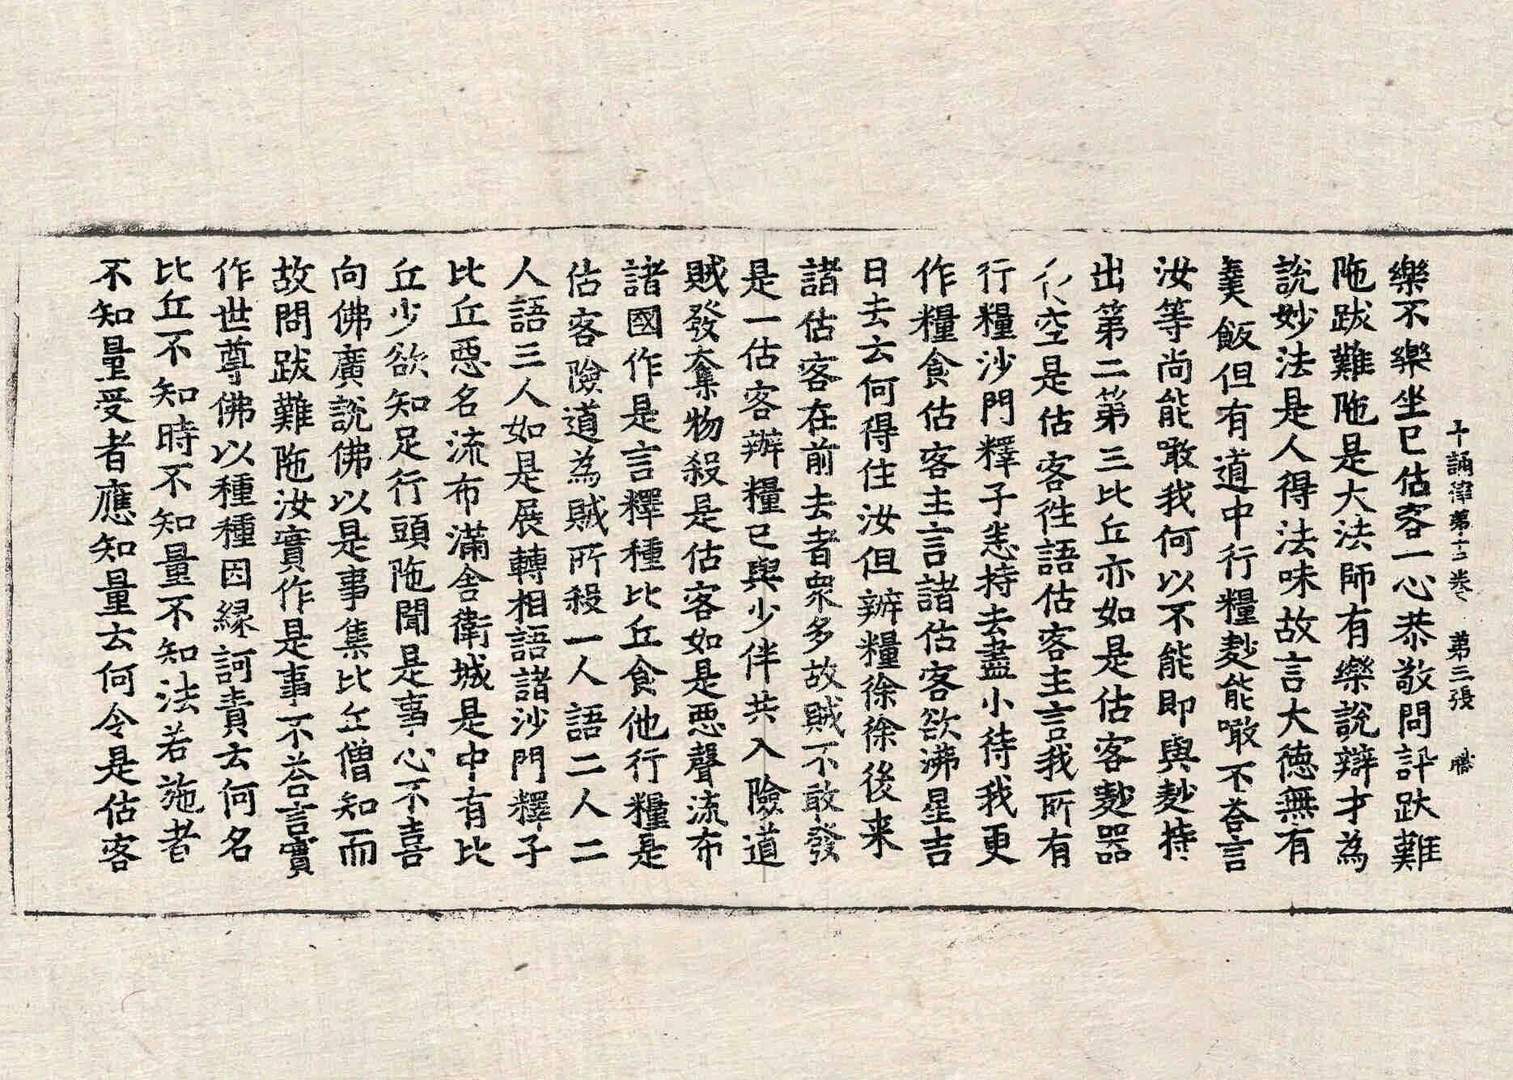 十誦律第十三卷 第三張 賤
樂不樂坐已估客一心恭敬問訊跋難
陁跋難陁是大法師有樂說辯才為
說妙法是人得法味故言大德無有
羙飯但有道中行糧麨能噉不荅言
汝等尚能噉我何以不能即與麨持
出第二第三比丘亦如是估客麨器
空是估客往語估客主言我所有
行糧沙門釋子悉持去盡小待我更
作糧食估客主言諸估客欲沸星吉
日去云何得住汝但辦糧徐徐後来
諸估客在前去者衆多故賊不敢發
是一估客辦糧已與少伴共入險道
賊發奪物殺是估客如是惡聲流布
諸國作是言釋種比丘食他行糧是
估客險道為賊所殺一人語二人二
人語三人如是展轉相語諸沙門釋子
比丘惡名流布滿舍衛城是中有比
丘少欲知足行頭陁聞是事心不喜
向佛廣說佛以是事集比丘僧知而
故問跋難陁汝實作是事不荅言實
作世尊佛以種種因緣訶責云何名
比丘不知時不知量不知法若施者
不知量受者應知量云何令是估客